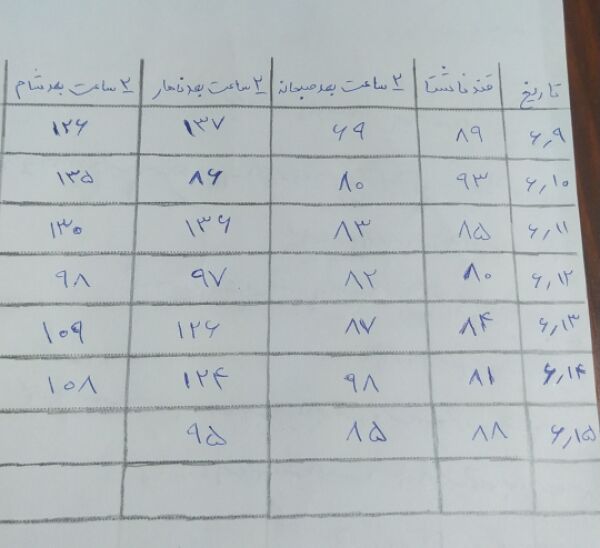 تاریخ قند ناشتا ۲ ساعت بعد صبحانه ۲ ساعت بعد ناهار ۲ ساعت بعد شام
۶٫۹ ۸۹ ۶۹ ۱۳۷ ۱۲۶
۶٫۱۰ ۹۳ ۸۰ ۸۶ ۱۳۵
۶٫۱۱ ۸۵ ۸۳ ۱۳۶ ۱۳۰
۶٫۱۲ ۸۰ ۸۲ ۹۷ ۹۸
۶٫۱۳ ۸۴ ۸۷ ۱۲۶ ۱۰۹
۶٫۱۴ ۸۱ ۹۸ ۱۲۴ ۱۰۸
۶٫۱۵ ۸۸ ۸۵ ۹۵